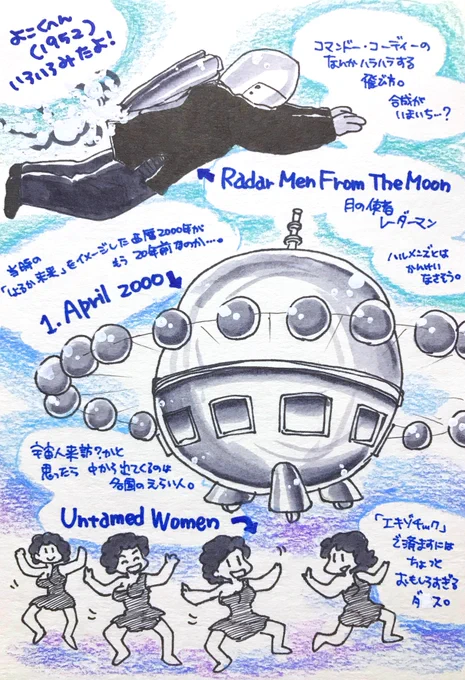 よこくへん
(1952)
いろいろみたよ!
コマンドー・コーディーの
なんかハラハラする
飛び方。
合成が
いまいちー?
Radar Men From The Moon
月の使者
レーダーマン
ハルメンズとは
かんけい
なさそう。
当時の
「はるか未来」をイメージした西暦2000年が
もう20年前なのか…。
1. April 2000
宇宙人来訪?かと
思ったら 中から出てくるのは
各国のえらい人。
Untamed Women
「エキゾチック」
で済ますには
ちょっと
おもしろすぎる
ダンス。